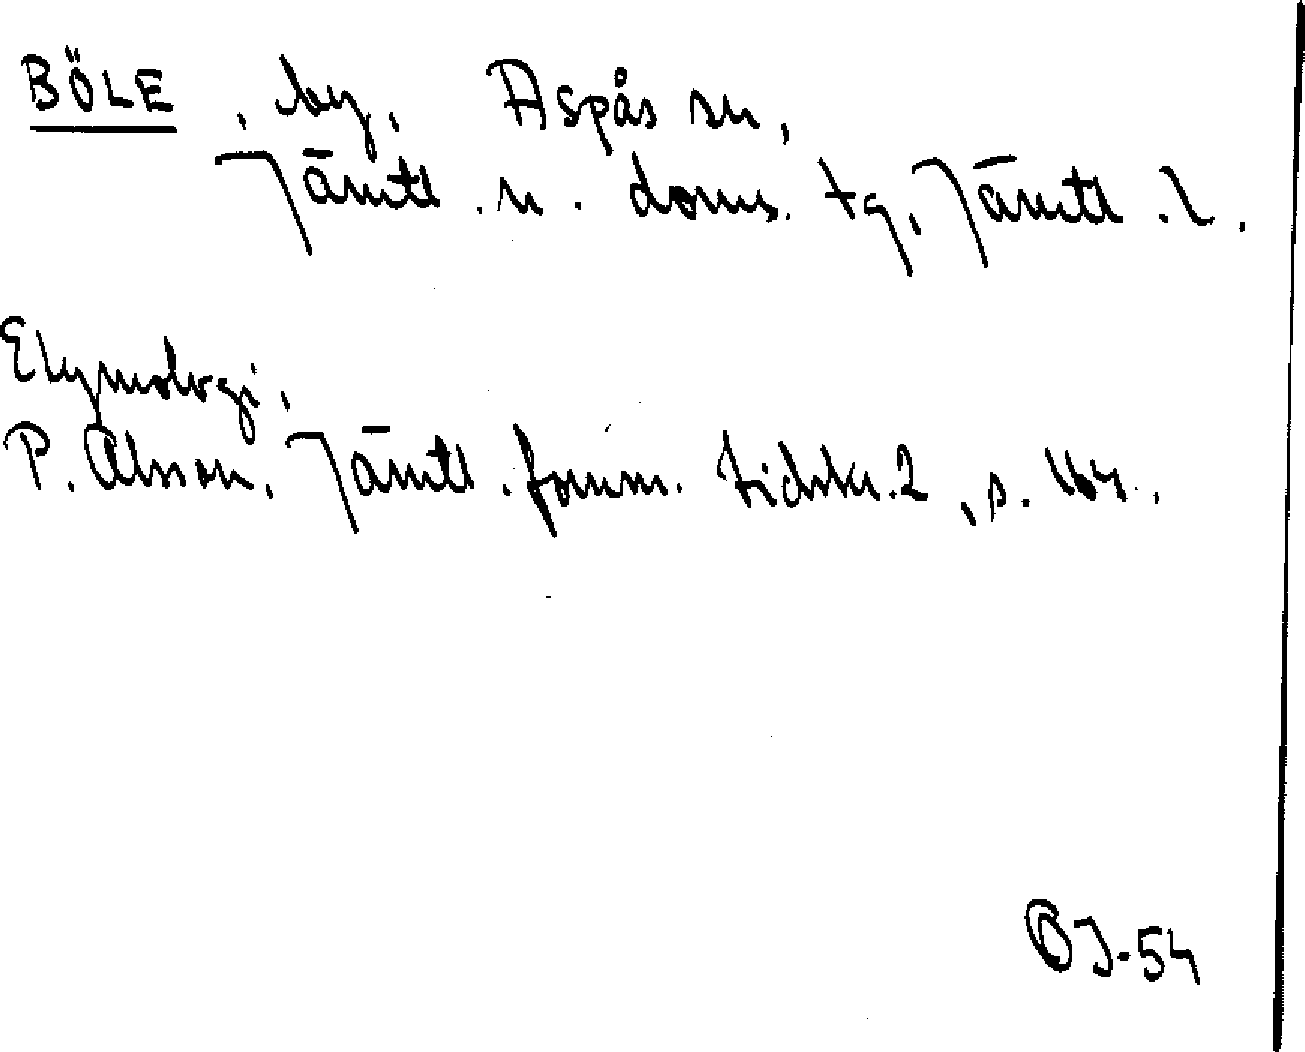 BÖLE, by, Aspås sn,
Jämtl. n. doms. tg, Jämtl. l.
Etymologi,
P. Olsson, Jämtl. fornm. tidskr. 2, s. 164.
OJ-54